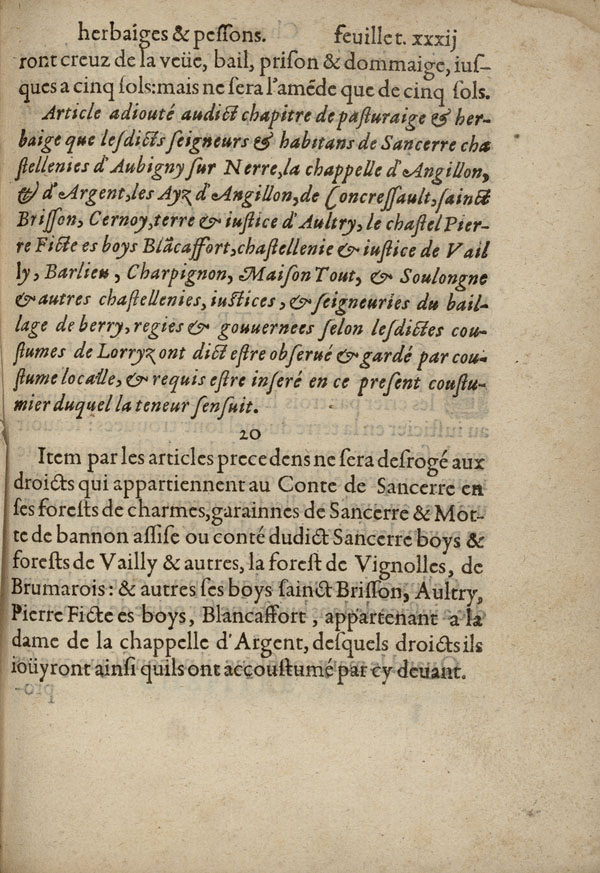 herbaiges & peſſons. feuillet. xxxij
ront creuz de la veüe, bail, priſon & dommaige, iuſ-
ques a cinq ſols: mais ne ſera l'amẽde que de cinq ſols.
Article adiouté audict chapitre de paſturaige & her-
baige que leſdicts ſeigneurs & habitans de Sancerre cha
ſtellenies d'Aubigny ſur Nerre, la chappelle d'Angillon,
& d'Argent, les Ayz d'Angillon, de Concreſſault, ſainct
Briſſon, Cernoy, terre & iuſtice d'Aultry, le chaſtel Pier-
re Ficte es boys Blãcaffort, chaſtellenie & iuſtice de Vail
ly, Barlieu, Charpignon, Maiſon Tout, & Soulongne
& autres chaſtellenies, iuſtices, & ſeigneuries du bail-
lage de berry, regies & gouuernees ſelon leſdictes cou-
ſtumes de Lorryz ont dict eſtre obſerué & gardé par cou-
ſtume localle, & requis eſtre inſeré en ce preſent couſtu-
mier duquel la teneur ſenſuit.
20
Item par les articles precedens ne ſera deſrogé aux
droicts qui appartiennent au Conte de Sancerre en
ſes foreſts de charmes, garainnes de Sancerre & Mot-
te de bannon aſſiſe ou conté dudict Sancerre boys &
foreſts de Vailly & autres, la foreſt de Vignolles, de
Brumarois: & autres ſes boys ſainct Briſſon, Aultry,
Pierre Ficte es boys, Blancaffort, appartenant a la
dame de la chappelle d'Argent, deſquels droicts ils
ioüyront ainſi quils ont accouſtumé par cy deuant.